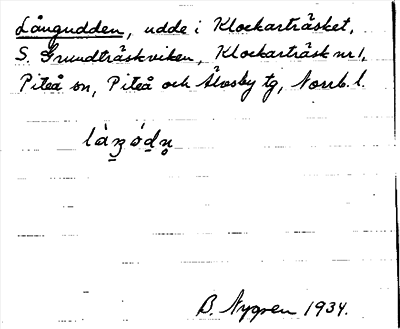 Långudden, udde i Klockarträsket,
S. Grundträskviken, Klockarträsk nr 1,
Piteå sn, Piteå och Älvsby tg, Norrb. l.
B. Nygren 1934.